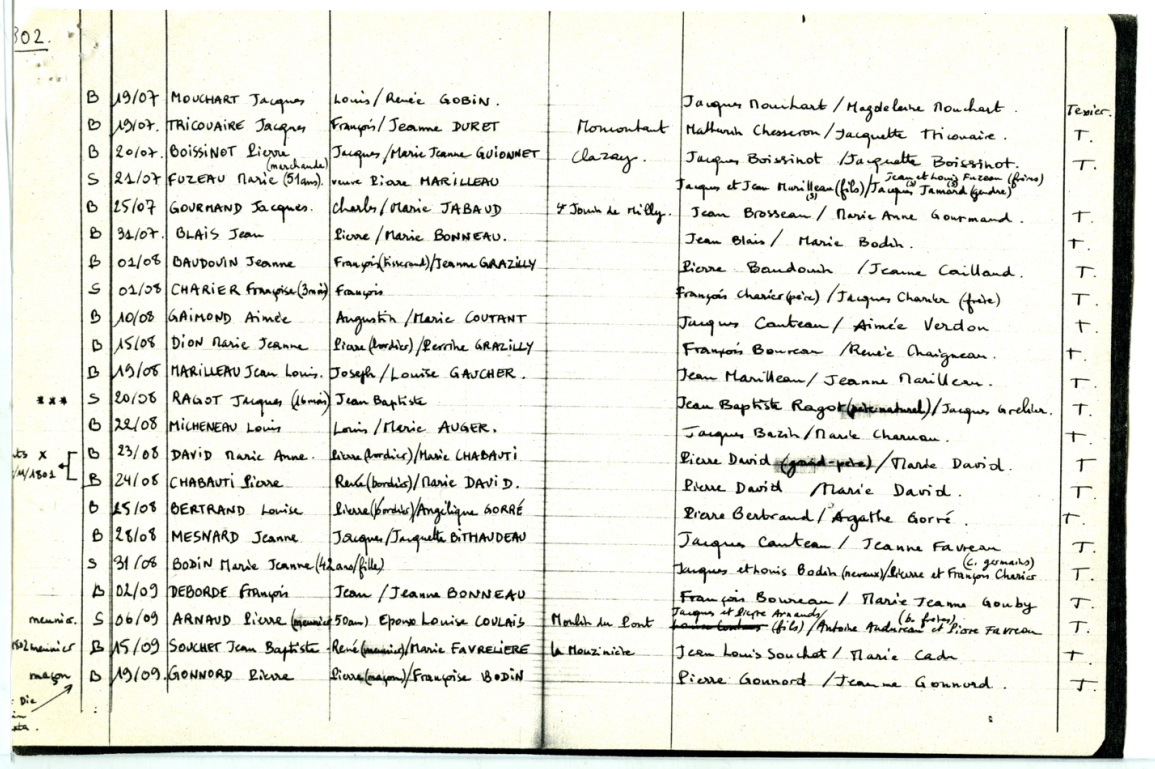 802.
B 19/07 MOUCHART Jacques Louis/Renée GOBIN. Jacques Mouchart/Magdeleine Mouchart. Tessier.
B 19/07. TRICOUAIRE Jacques François/Jeanne DURET Moncoutant Mathurin Chesseron/Jacquette Tricouaire. T.
B 20/07. BOISSINOT Pierre (marchand) Jacques/Marie Jeanne GUIONNET Clazay. Jacques Boissinot/Jacquette Boissinot. T.
S 21/07 FUZEAU Marie (51ans). veuve Pierre MARILLEAU Jacques et Jean Marilleau (fils)/Jacques Jamard (gendre) Jean et Louis Fuzeau (frères)
B 25/07 GOURMAND Jacques. Charles/Marie JABAUD St Jouin de Milly. Jean Brosseau/Marie Anne Gourmand. T.
B 31/07. BLAIS Jean Pierre/Marie BONNEAU. Jean Blais/Marie Bodin. T.
B 01/08 BAUDOUIN Jeanne François (tisserand)/Jeanne GRAZILLY Pierre Baudouin/Jeanne Caillaud. T.
S 01/08 CHARIER Françoise (3mois) François François Charier (père)/Jacques Charrier (frère) T.
B 10/08 GAIMOND Aimée Augustin/Marie COUTANT Jacques Canteau/Aimée Verdon T.
B 15/08 DION Marie Jeanne Pierre (bordier)/Perrine GRAZILLY François Boureau/Renée Chaigneau. T.
B 19/08 MARILLEAU Jean Louis. Joseph/Louise GAUCHER. Jean Marilleau/Jeanne Marilleau. T.
*** S 20/08 RAGOT Jacques (16mois) Jean Baptiste Jean Baptiste Ragot (père naturel)/Jacques Grellier. T.
B 22/08 MICHENEAU Louis Louis/Marie AUGER. Jacques Bazin/Marie T.
ts x B 23/08 DAVID Marie Anne. Pierre (bordier)/Marie CHABAUTI Pierre David (grand-père)/Marie David. T
/M/1801 B 24/08 CHABAUTI Pierre René (bordier)/Marie DAVID. Pierre David/Marie David. T
B 25/08 BERTRAND Louise Pierre (bordier)/Angélique GORRÉ Pierre Bertrand/Agathe Gorré. T.
B 28/08 MESNARD Jeanne Jacques/Jacquette BITHAUDEAU Jacques Canteau/Jeanne Favreau T.
S 31/08 BODIN Marie Jeanne (42 ans/fille) Jacques et Louis Bodin (neveux)/Pierre et François Charier (c. germains) T.
B 02/09 DEBORDE François Jean/Jeanne BONNEAU François Boureau/Marie Jeanne Gouby T.
meunier. S 06/09 ARNAUD Pierre (meunier 50ans) Epoux Louise COULAIS Moulin du Pont Jacques et Pierre Arnauds/ (fils)/Antoine et Pierre Favreau (b. frères) T.
meunier B 15/09 SOUCHET Jean Baptiste René (meunier)/Marie FAVRELIERE la Mouzinière Jean Louis Souchet/Marie T.
maçon B 19/09. GONNORD Pierre Pierre (maçon)/Françoise BODIN Pierre Gonnord/Jeanne Gonnord. T.